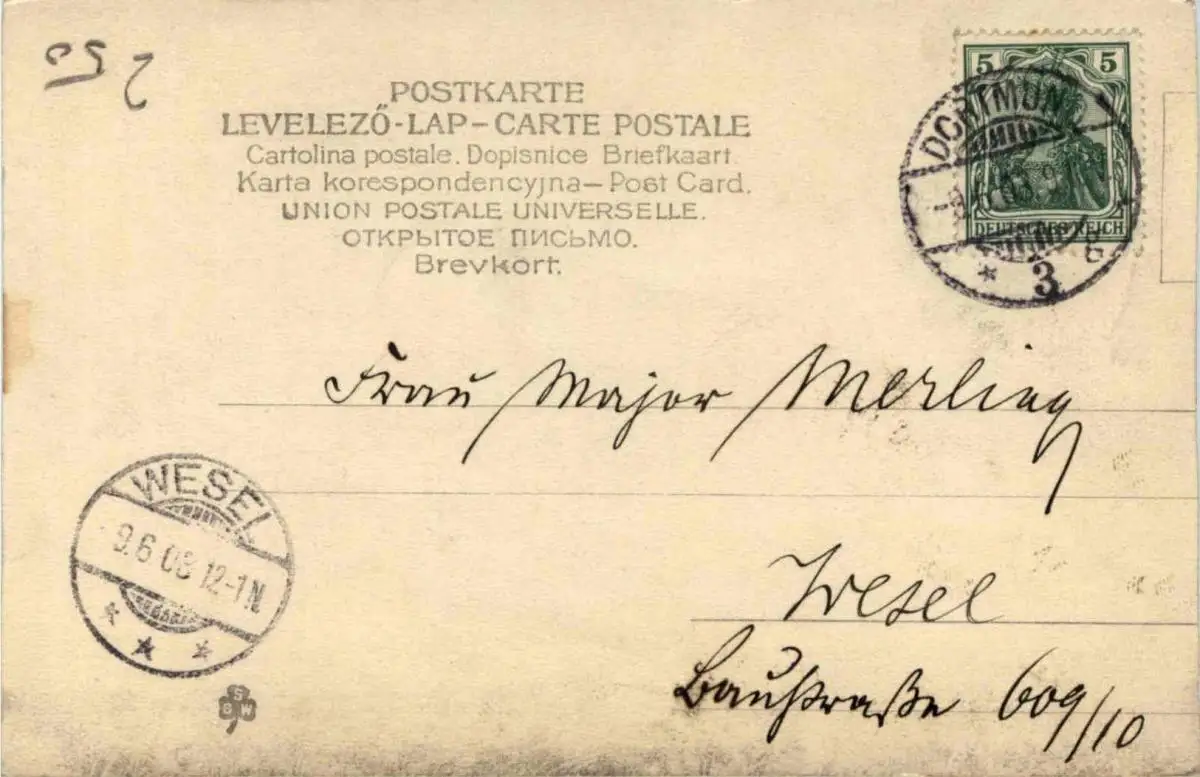 POSTKARTE
LEVELEZŐ-LAP-CARTE POSTALE
Cartolina postale. Dopisnice Briefkaart.
Karta korespondencyjna-Post Card.
UNION POSTALE UNIVERSELLE.
ОТКРЫТОЕ ПИСЬМО.
Brevkort.
5 5
DEUTSCHES REICH
DORTMUND
3
Frau Major Merling
WESEL
9.6 03 12-1N
Wesel
Baustraße 609/10
S
B W